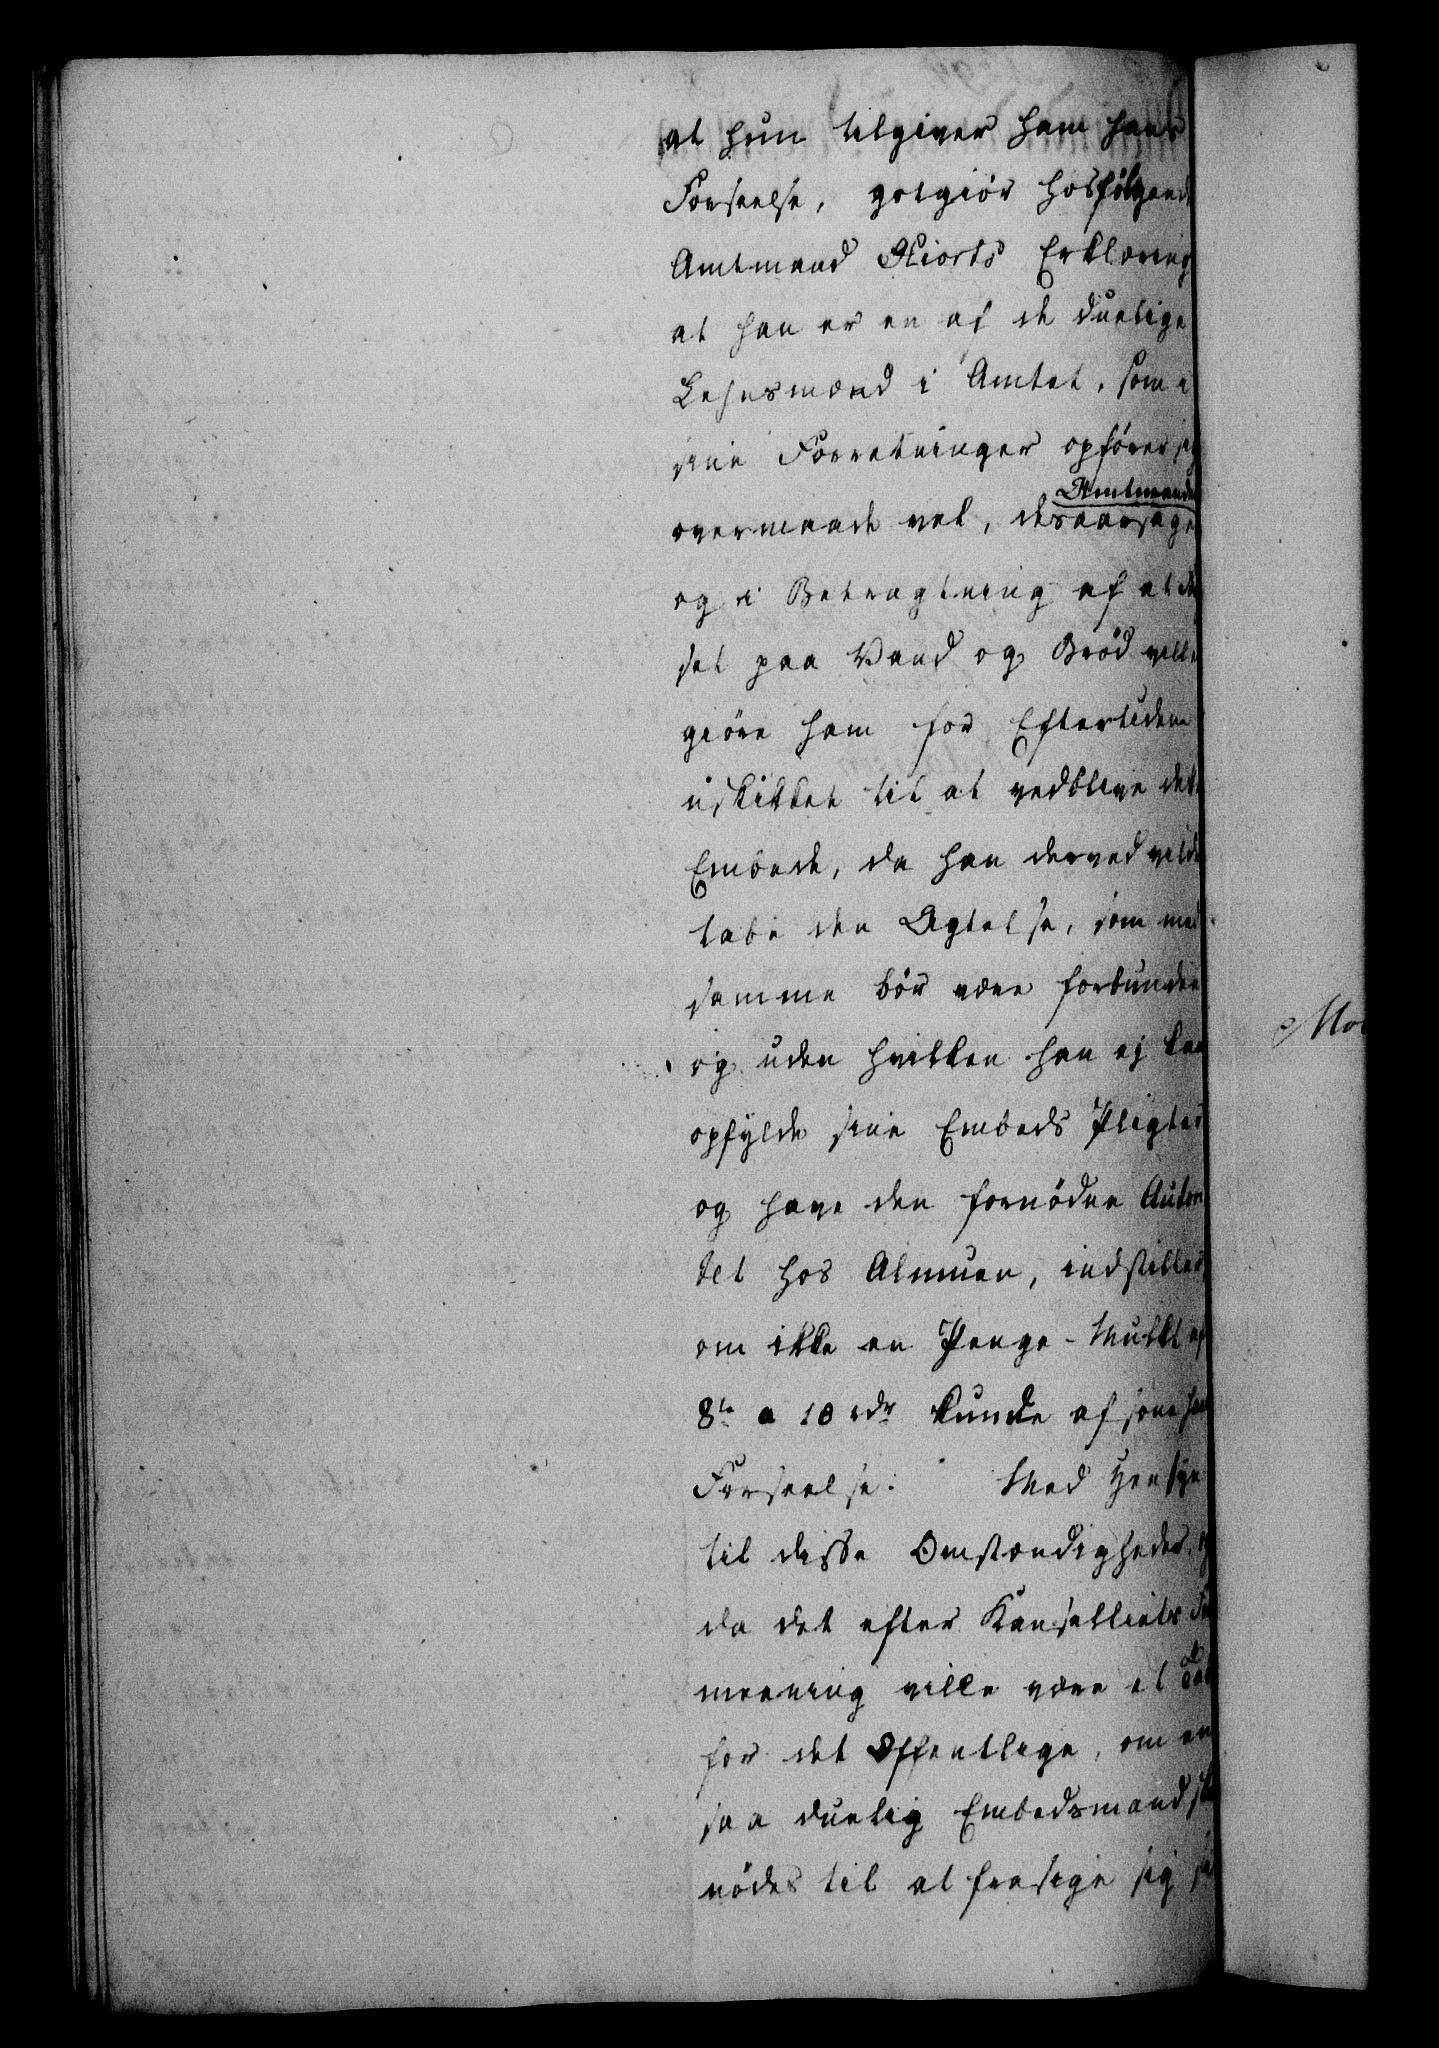 at hun tilgiver ham hans
Forseelse, gotgiør hosfølgende
Amtmand Hiorts Erklæring
at han er en af de duelige
Lehnsmænd i Amtet, som i
sine Forretninger opfører sig
Amtmanden
overmaade vel, desaarsage
og i Betragtning af at
sel paa Vand og Brød ville
giøre ham for Eftertiden
uskikket til at vedblive dette
Embede, da han derved vilde
tabe den Agtelse, som med
samme bør være forbunden
og uden hvilken han ej kan
opfylde sine Embeds Pligter
og have den fornødne Autori
tet hos Almuen, indstiller
om ikke en Penge-Mulkt af
8te a 10 rdr kunde afsone hans
Forseelse. Med Hensyn
til disse Omstændigheder, og
da det efter Kanselliets For
meening ville være et Tab
for det Offentlige, om en
saa duelig Embedsmand
nødes til at frasige sig
Mo